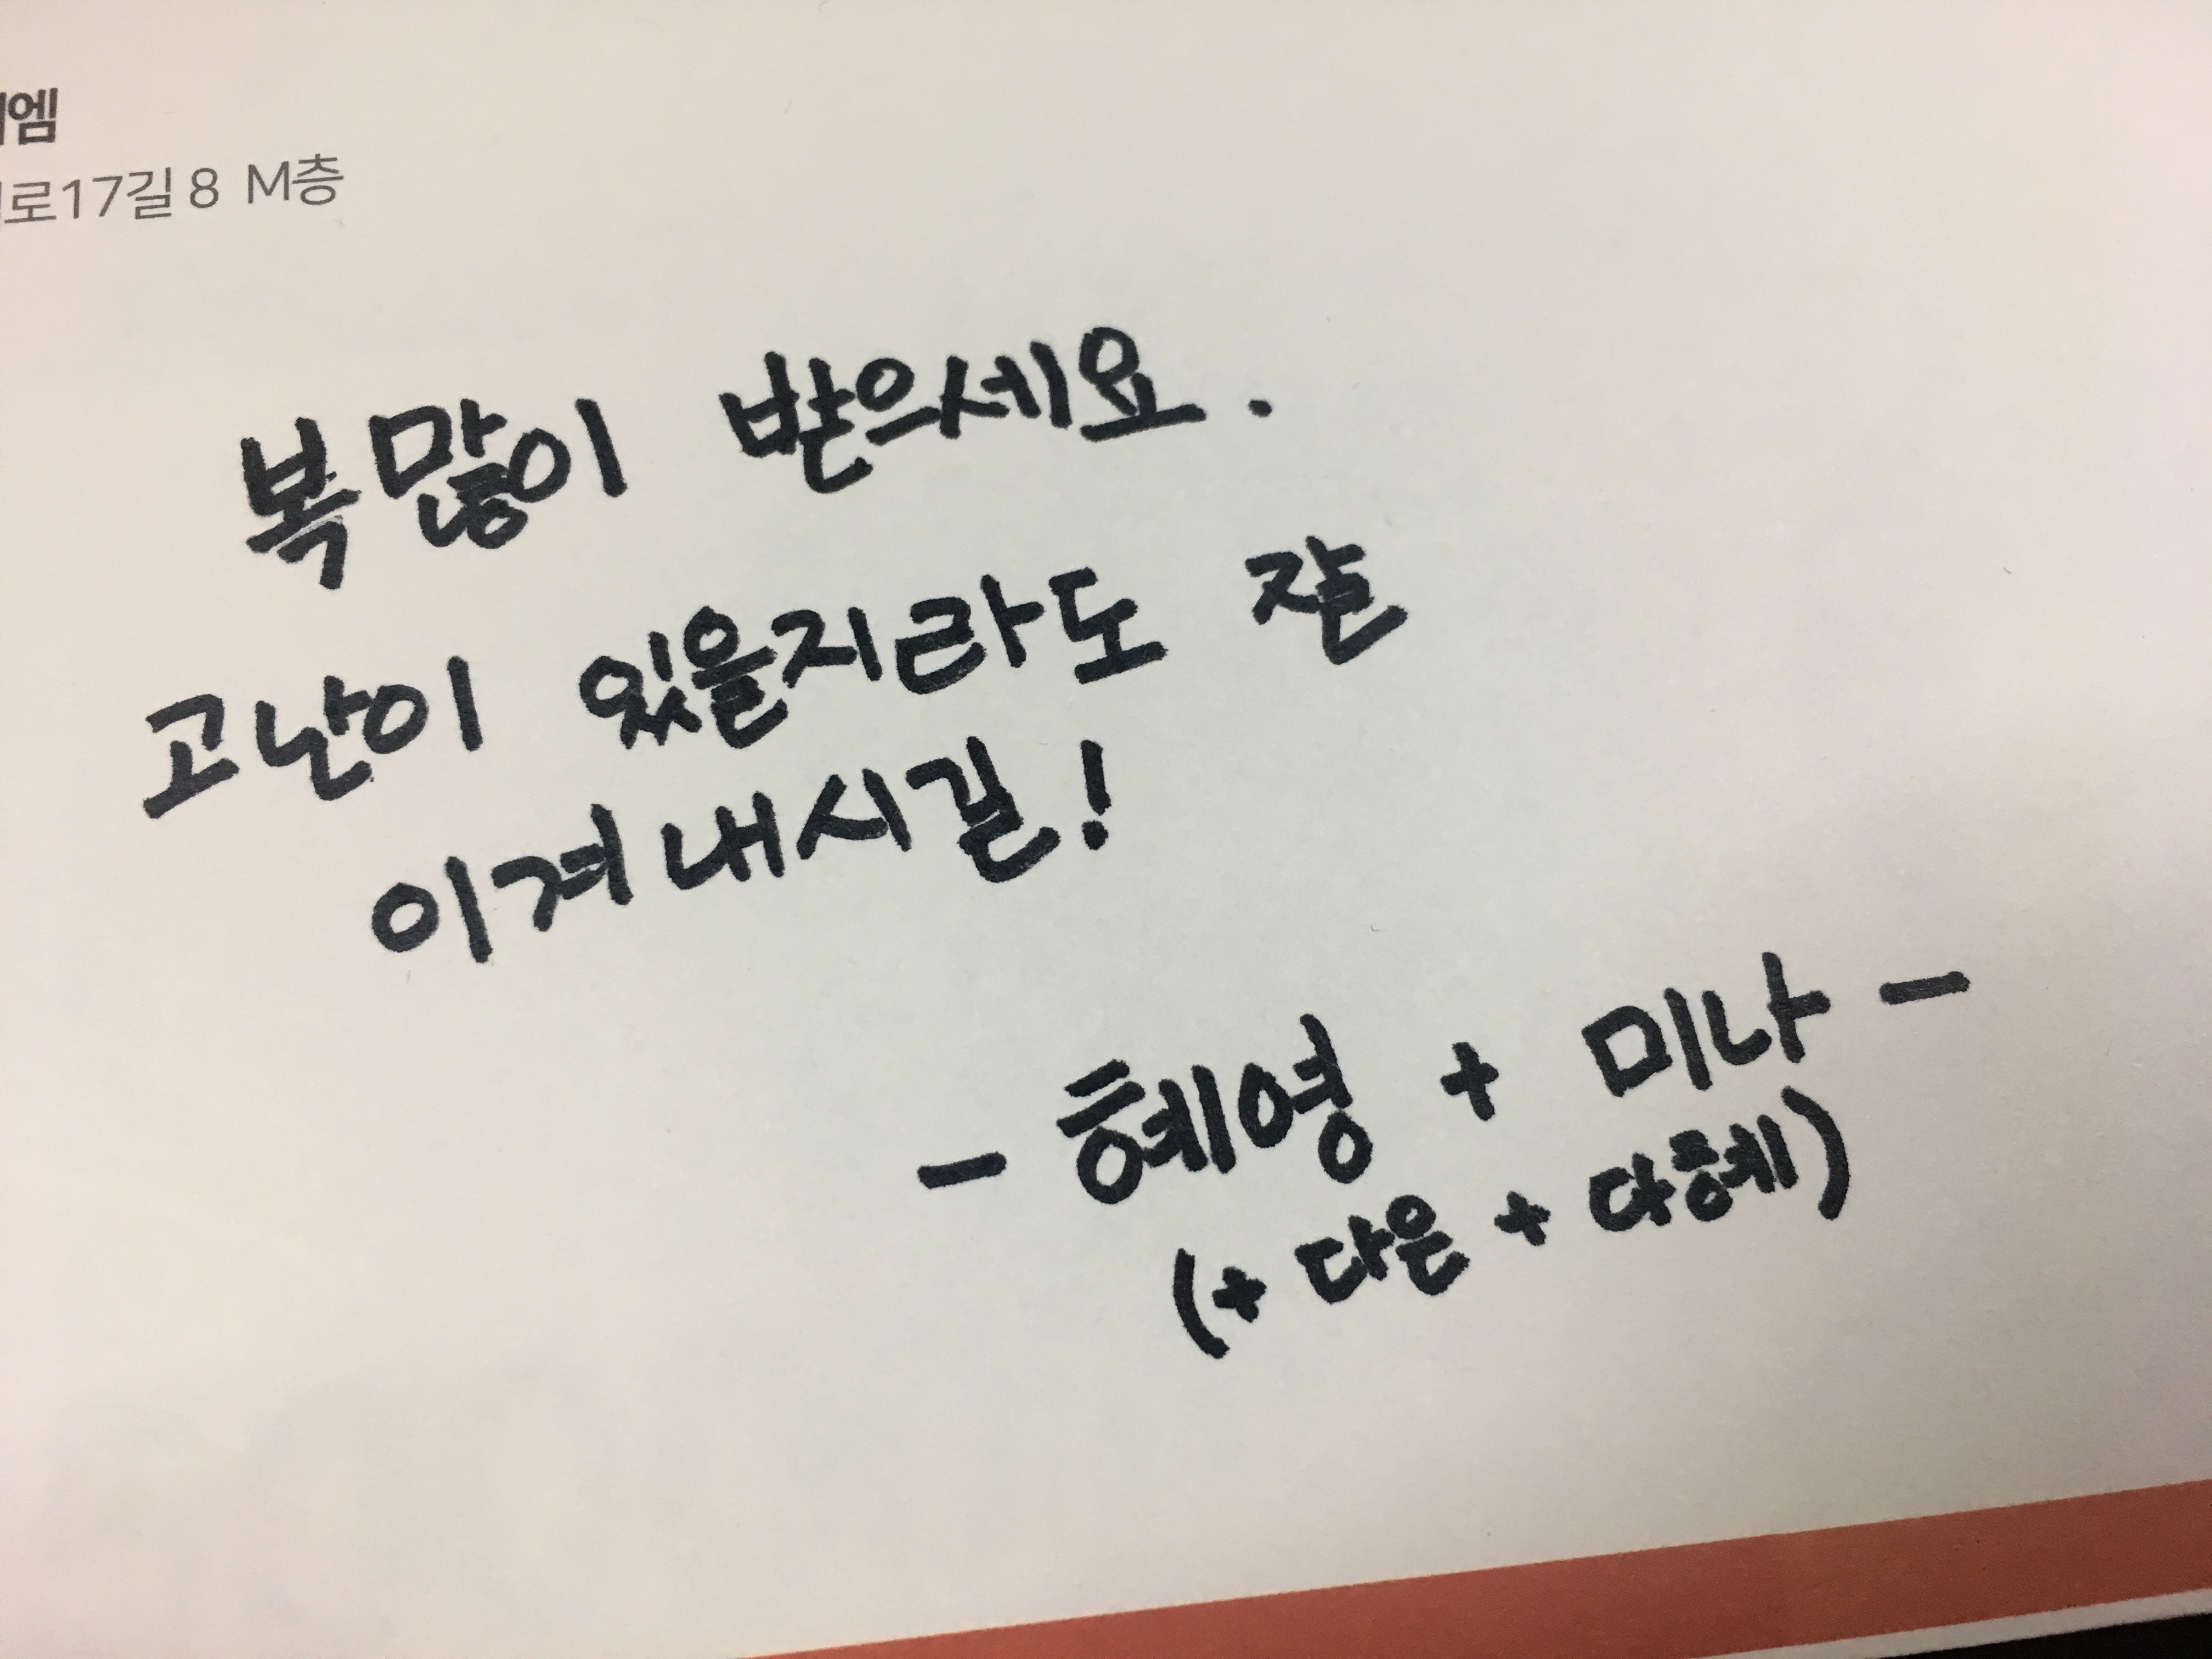 엠
로17길 8 M층
복 많이 받으세요.
고난이 있을지라도 잘
이겨내시길!
- 혜영 + 미나 -
(+ 다은 + 다혜)